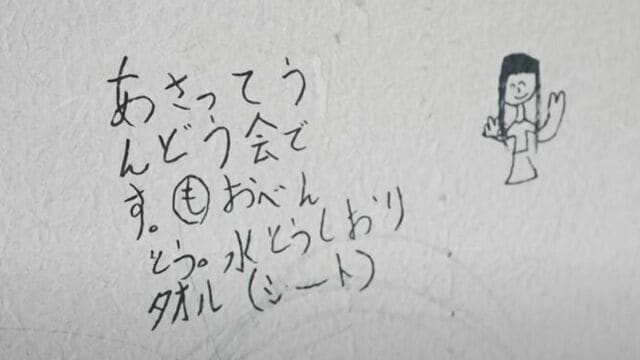 あさってう
んどう会で
す。㋲おべん
とう。水とうしおり
タオル(シート)